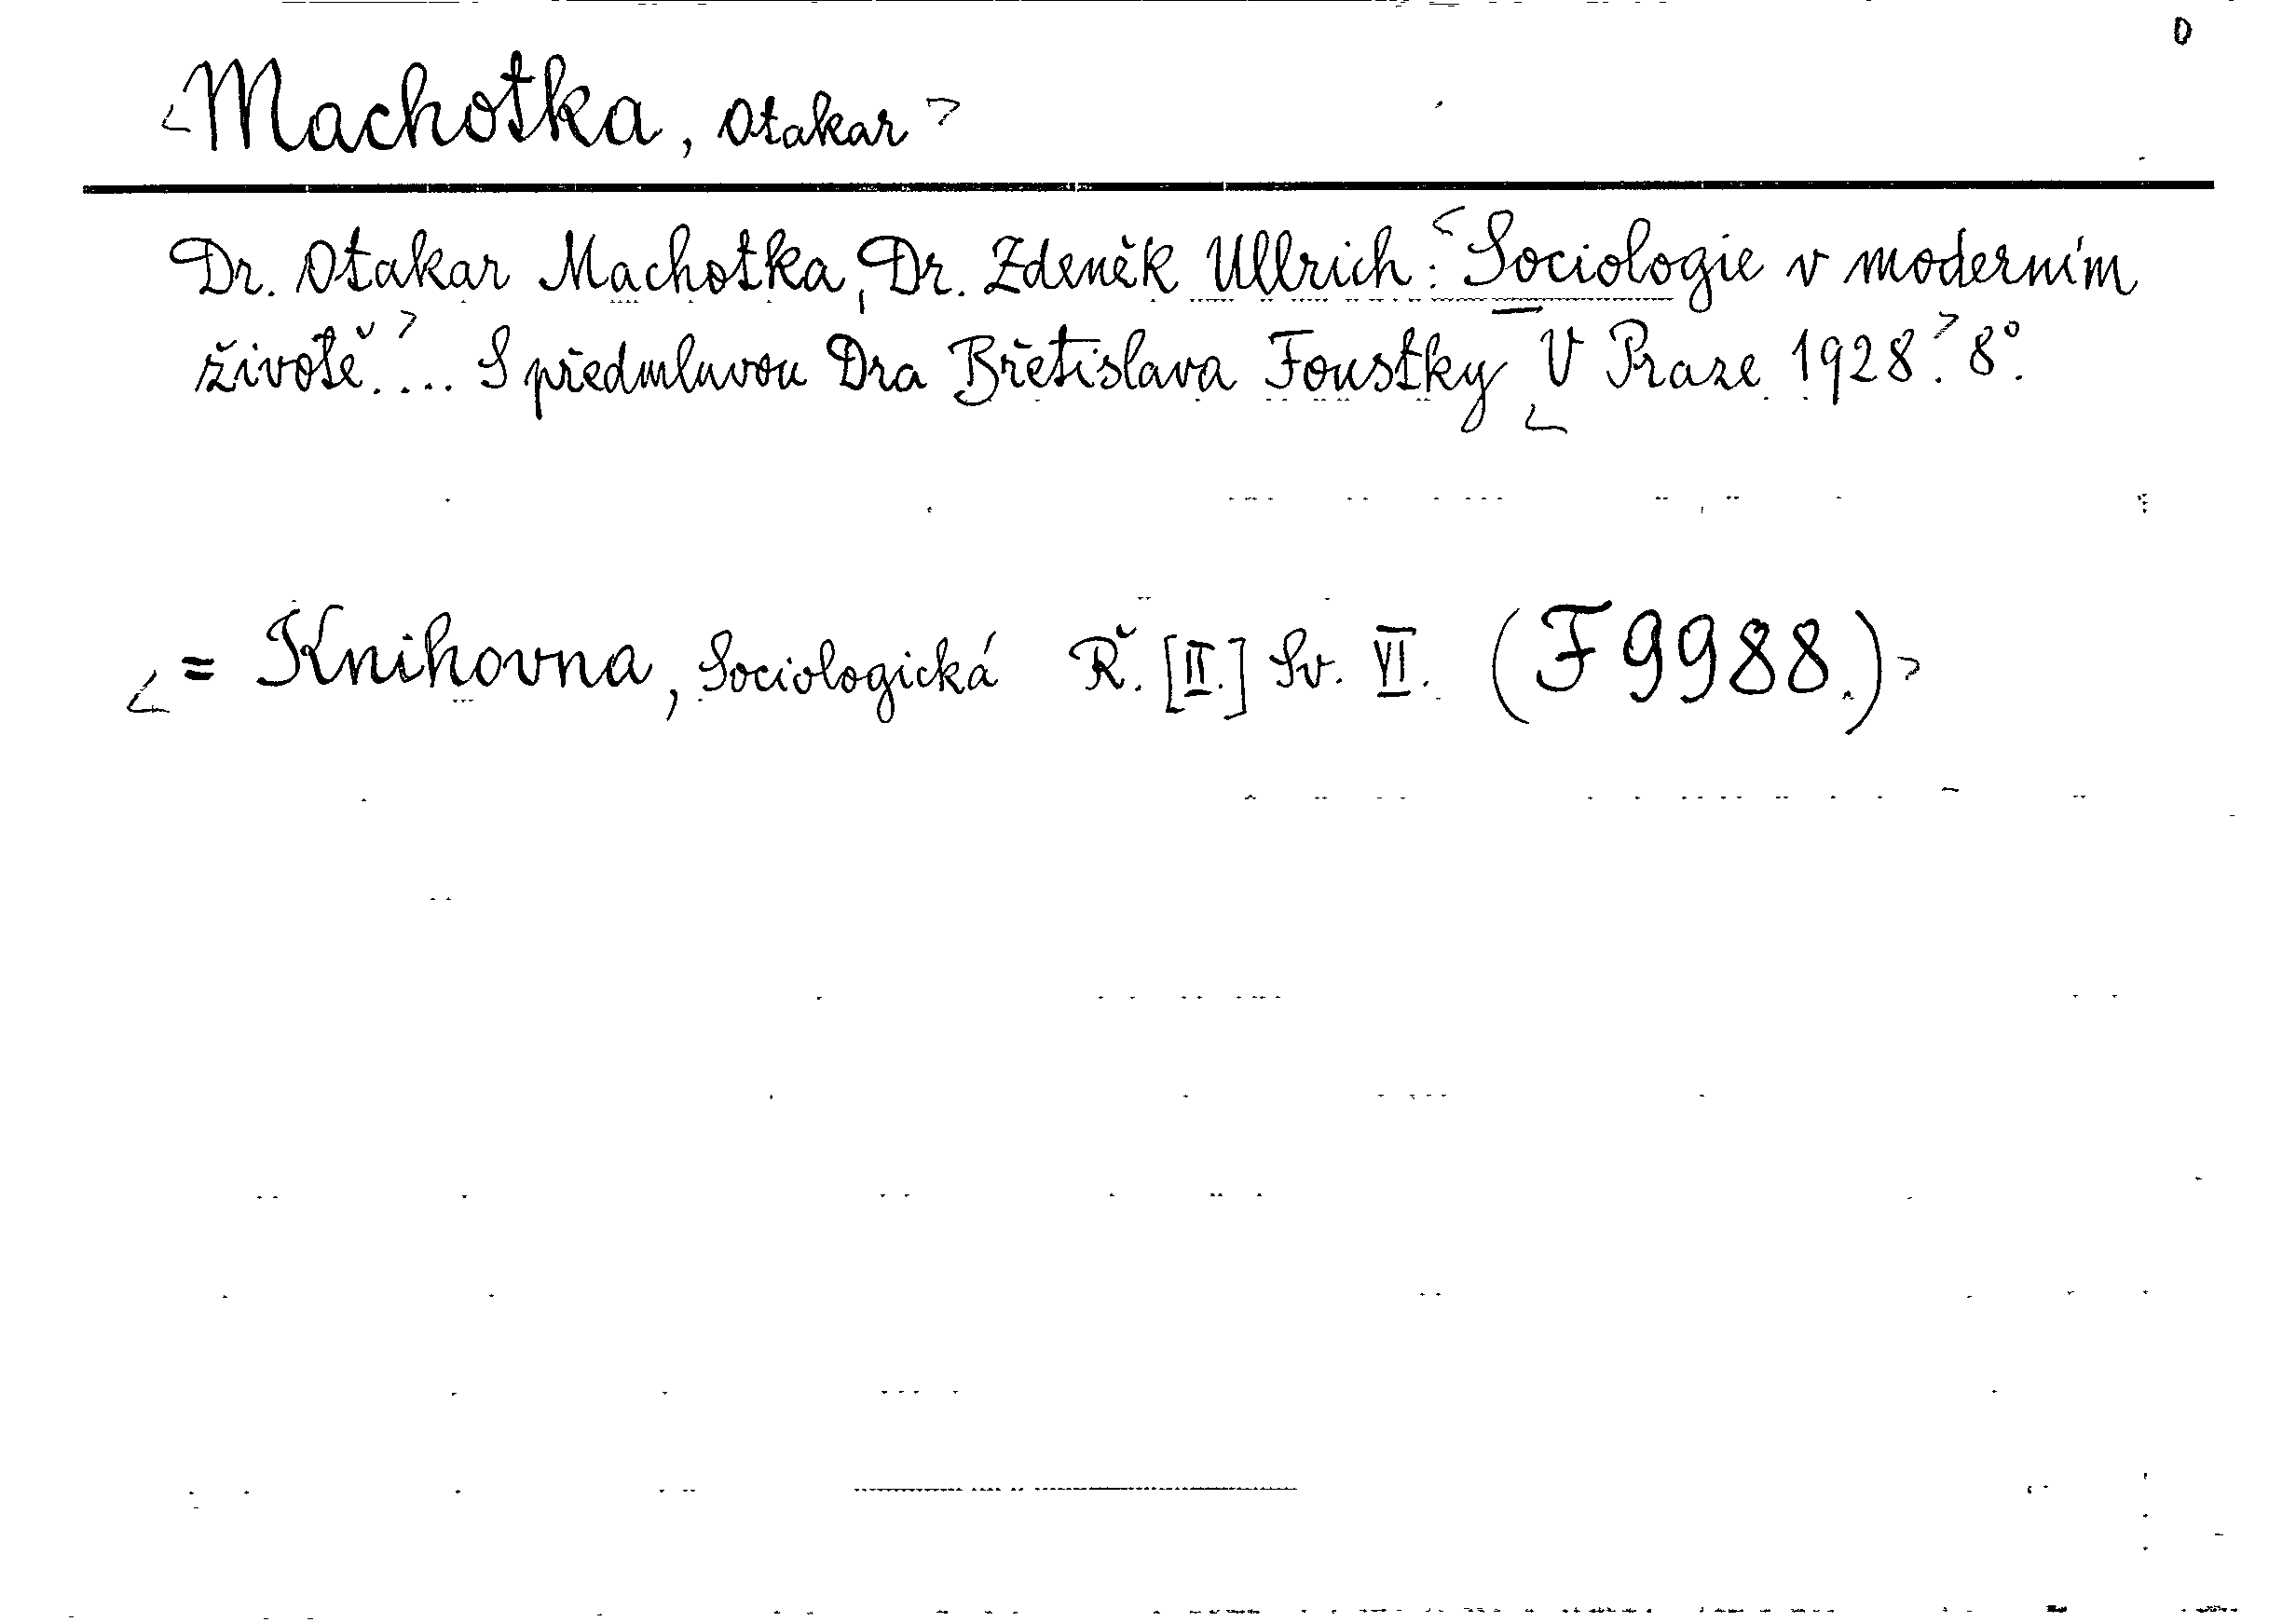 0
<Machotka, Otakar>
Dr. Otakar Machotka, Dr. Zdeněk Ullrich: <Sociologie v moderním
životě.>... S předmluvou Dra Břetislava Foustky <V Praze 1928.> 8°.
<= Knihovna, Sociologická Ř. [II.] Sv. VI. (F 9988.)>